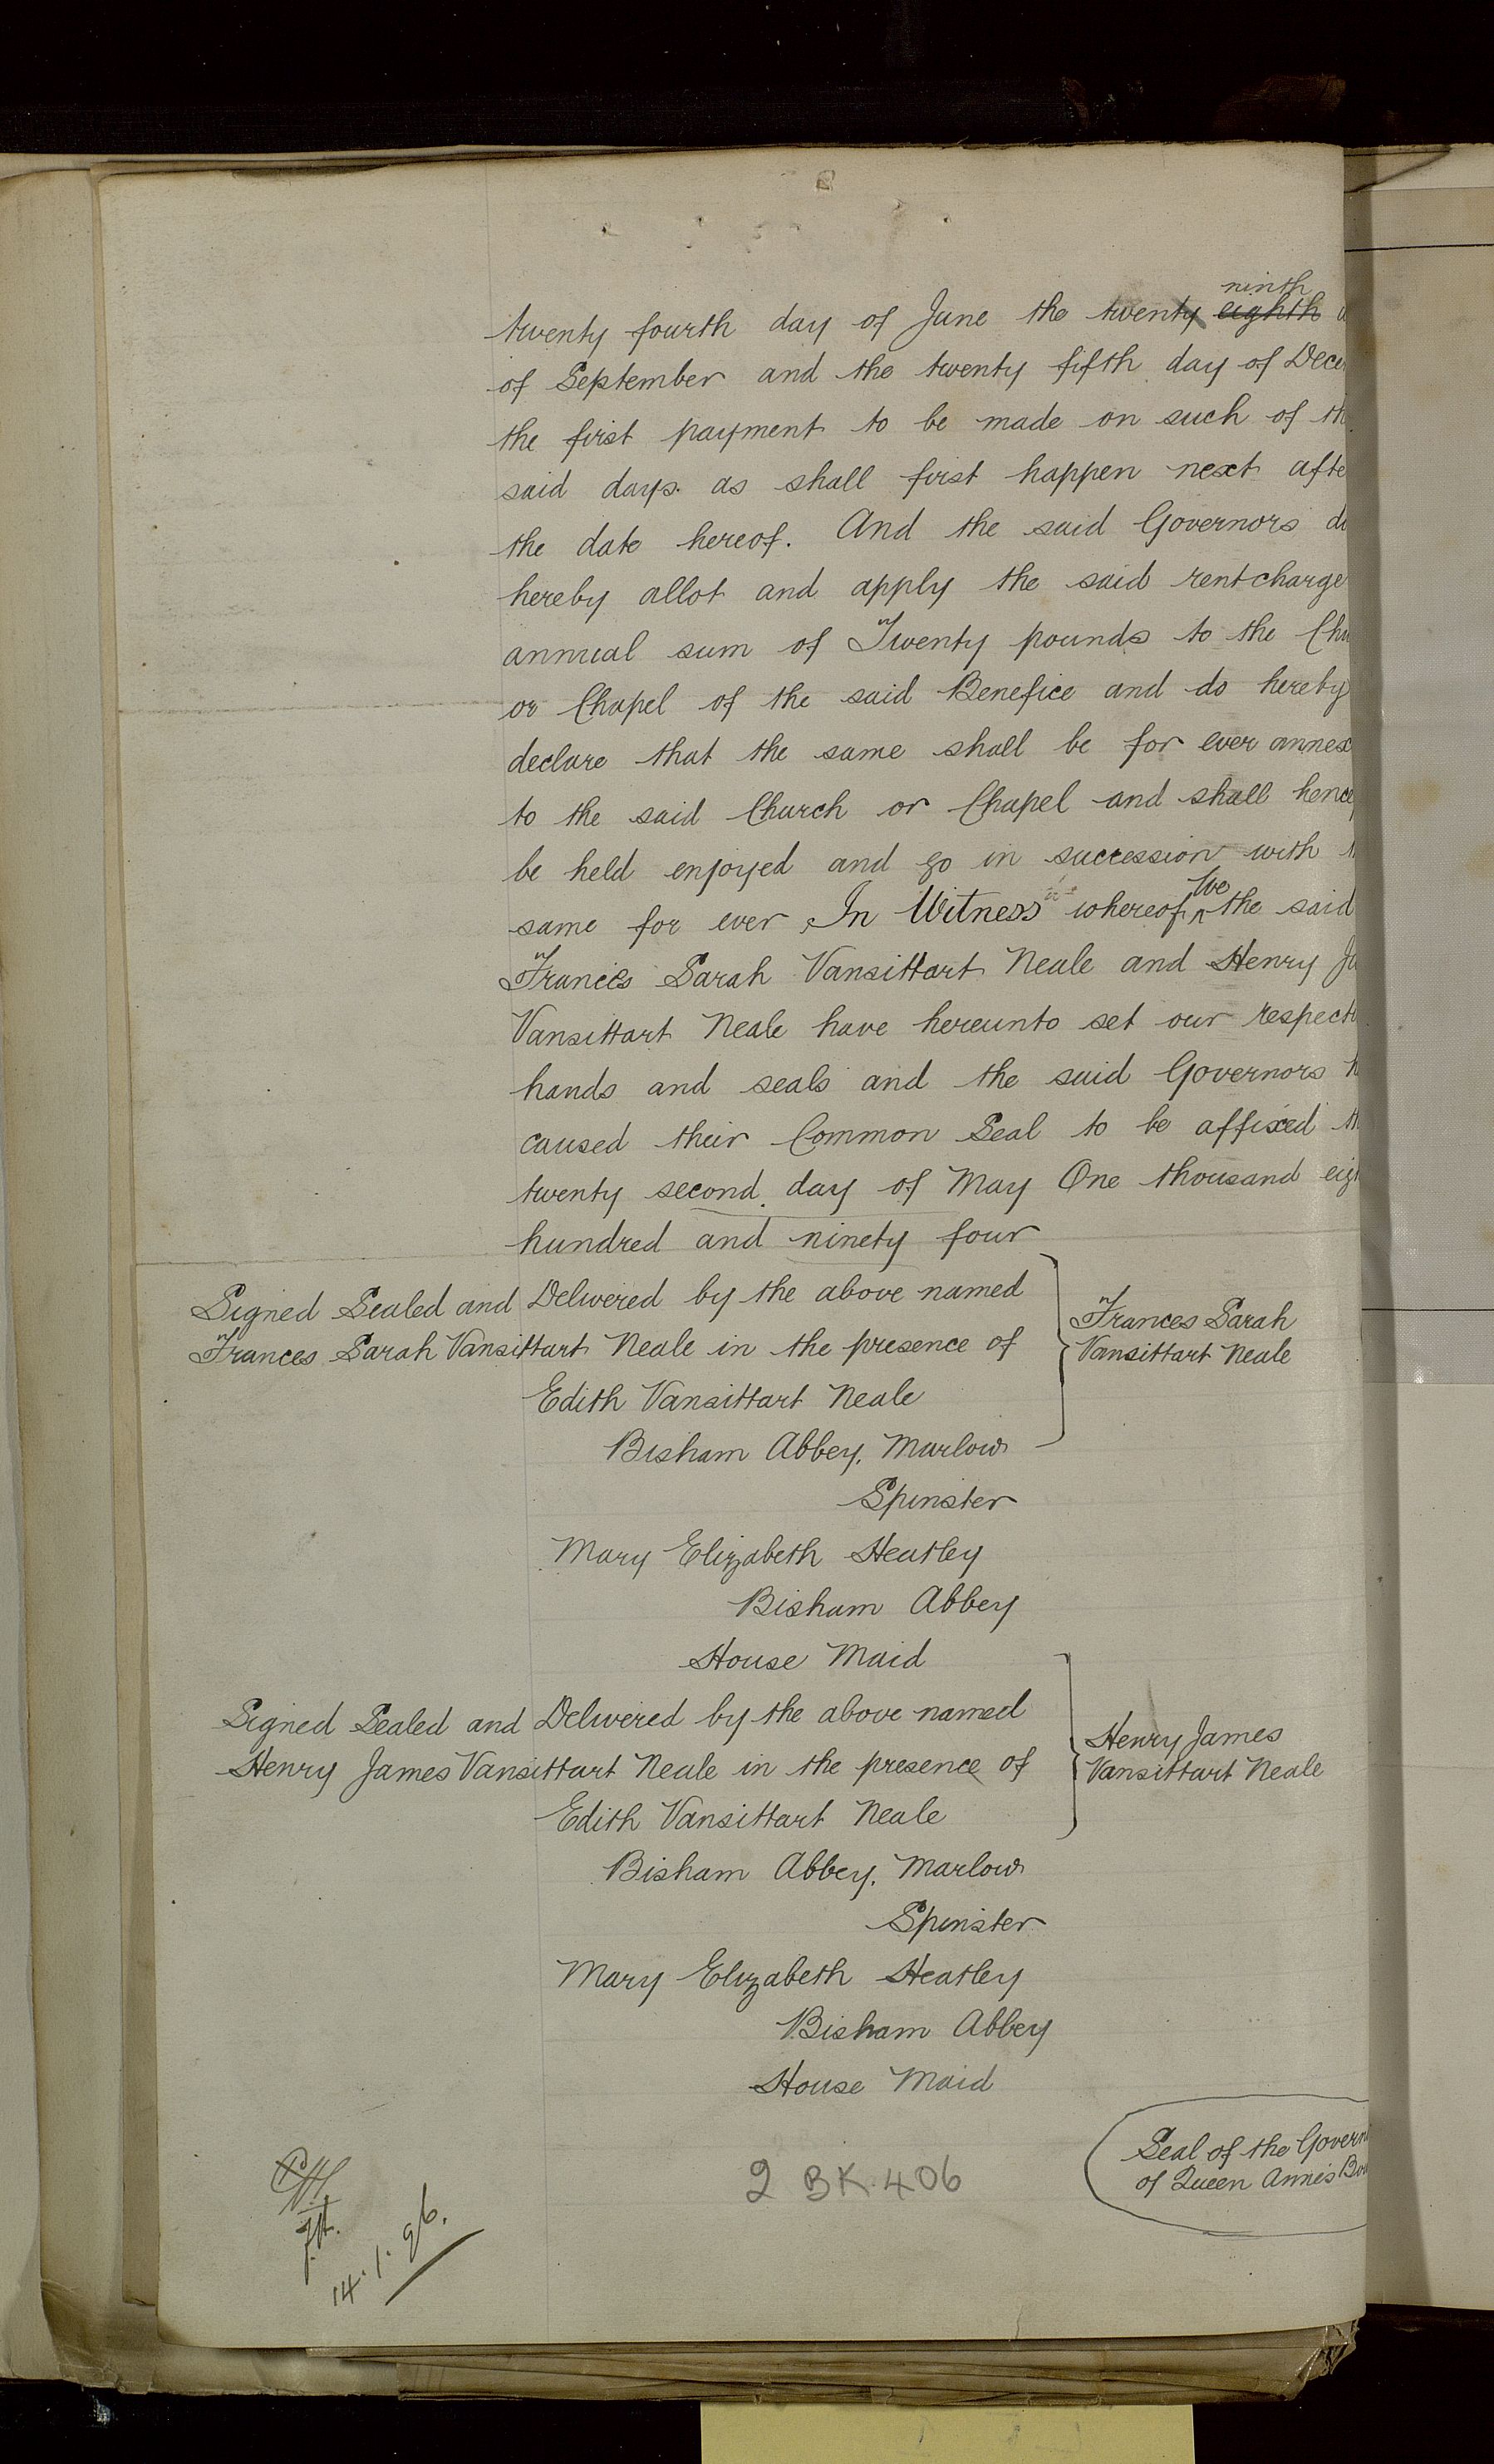 twenty fourth day of June the twenty ninth eighth d
of September and the twenty fifth day of Dece
the first payment to be made on such of th
said days as shall first happen next afte
the date hereof. And the said Governors do
hereby allot and apply the said rentcharge
annual sum of Twenty pounds to the Chu
or Chapel of the said Benefice and do hereby
declare that the same shall be for ever annex
to the said Church or Chapel and shall hence
be held enjoyed and go in succession with
same for ever In Witness whereof we the said
Frances Sarah Vansittart Neale and Henry Ja
Vansittart Neale have hereunto set our respecti
hands and seals and the said Governors h
caused their Common Seal to be affixed th
twenty second day of May One thousand eigh
hundred and ninety four
Signed Sealed and Delivered by the above named
Frances Sarah Vansittart Neale in the presence of
Frances Sarah
Vansittart Neale
Edith Vansittart Neale
Bisham Abbey, Marlow
Spinster
Mary Elizabeth Heatley
Bisham Abbey
House Maid
Signed Sealed and Delivered by the above named
Henry James Vansittart Neale in the presence of
Henry James
Vansittart Neale
Edith Vansittart Neale
Bisham Abbey, Marlow
Spinster
Mary Elizabeth Heatley
Bisham Abbey
House Maid
Seal of the Govern
of Queen Anne's Bou
2 BK.406
14.1.96.